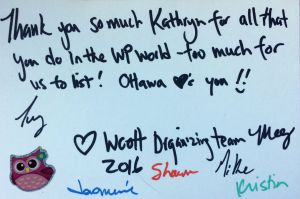 Thank you so much Kathryn for all that
you do in the WP world too much for
us to list! Ottawa ♥'s you!!
♡ WCOTT Organizing team Meg
2016 Shawn Mike
Jasmine Kristin